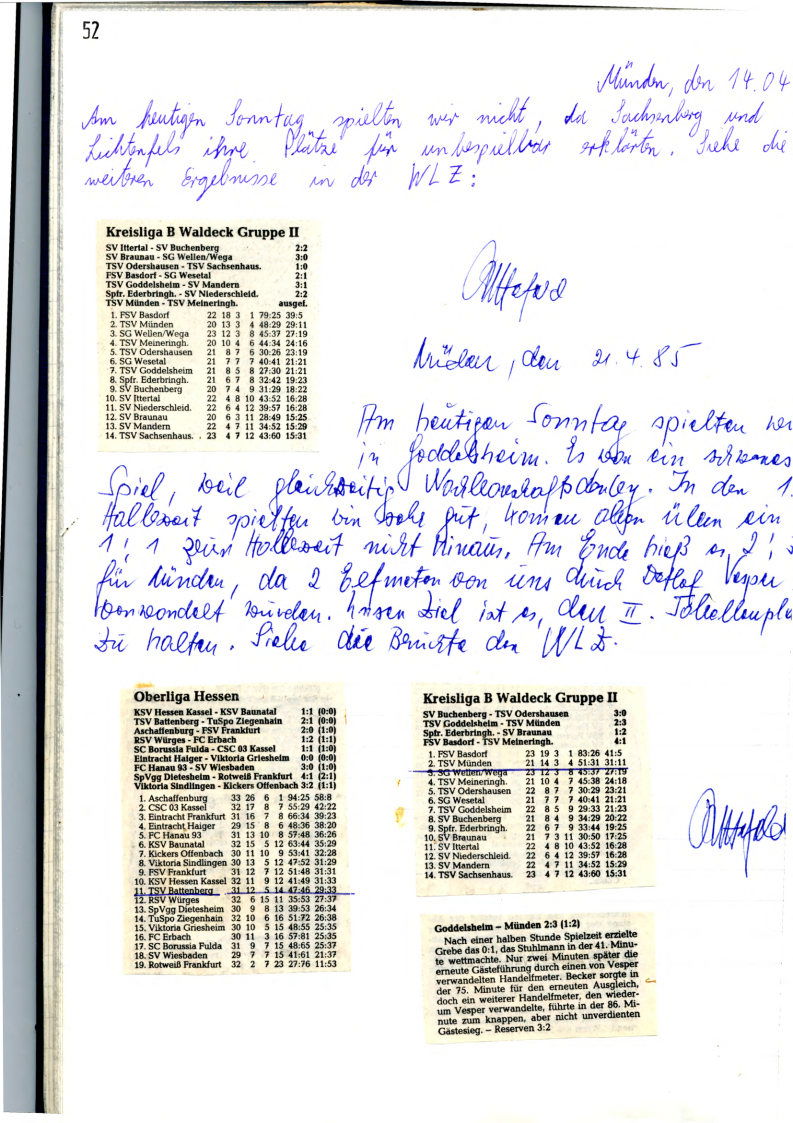 52
Münden, den 14.04
Am heutigen Sonntag spielten wir nicht, da Sachsenberg und
Lichtenfels ihre Plätze für unbespielbar erklärten. Siehe die
weiteren Ergebnisse in der WLZ:
Kreisliga B Waldeck Gruppe II
SV Ittertal - SV Buchenberg 2:2
SV Braunau - SG Wellen/Wega 3:0
TSV Odershausen - TSV Sachsenhaus. 1:0
FSV Basdorf - SG Wesetal 2:1
TSV Goddelsheim - SV Mandern 3:1
Spfr. Ederbringh. - SV Niederschleid. 2:2
TSV Münden - TSV Meineringh. ausgef.
1. FSV Basdorf 22 18 3 1 79:25 39:5
2. TSV Münden 20 13 3 4 48:29 29:11
3. SG Wellen/Wega 23 12 3 8 45:37 27:19
4. TSV Meineringh. 20 10 4 6 44:34 24:16
5. TSV Odershausen 21 8 7 6 30:26 23:19
6. SG Wesetal 21 7 7 7 40:41 21:21
7. TSV Goddelsheim 21 8 5 8 27:30 21:21
8. Spfr. Ederbringh. 21 6 7 8 32:42 19:23
9. SV Buchenberg 20 7 4 9 31:29 18:22
10. SV Ittertal 22 4 8 10 43:52 16:28
11. SV Niederschleid. 22 6 4 12 39:57 16:28
12. SV Braunau 20 6 3 11 28:49 15:25
13. SV Mandern 22 4 7 11 34:52 15:29
14. TSV Sachsenhaus. . 23 4 7 12 43:60 15:31
Münden, den 21.4.85
Am heutigen Sonntag spielten
in Goddelsheim. Es war ein schweres
Spiel, weil gleichzeitig Nachbarschaftsderby. In den 1.
Halbzeit spielten wir sehr gut, kamen aber über ein
1:1 zur Halbzeit nicht hinaus. Am Ende hieß es 2:
für Münden, da 2 Elfmeter von uns durch Detlef Vesper
verwandelt wurden. Unser Ziel ist es, den II.
zu halten. Siehe die Berichte der WLZ.
Oberliga Hessen
KSV Hessen Kassel - KSV Baunatal 1:1 (0:0)
TSV Battenberg - TuSpo Ziegenhain 2:1 (0:0)
Aschaffenburg - FSV Frankfurt 2:0 (1:0)
RSV Würges - FC Erbach 1:2 (1:1)
SC Borussia Fulda - CSC 03 Kassel 1:1 (1:0)
Eintracht Haiger - Viktoria Griesheim 0:0 (0:0)
FC Hanau 93 - SV Wiesbaden 3:0 (1:0)
SpVgg Dietesheim - Rotweiß Frankfurt 4:1 (2:1)
Viktoria Sindlingen - Kickers Offenbach 3:2 (1:1)
1. Aschaffenburg 33 26 6 1 94:25 58:8
2. CSC 03 Kassel 32 17 8 7 55:29 42:22
3. Eintracht Frankfurt 31 16 7 8 66:34 39:23
4. Eintracht Haiger 29 15 8 6 48:36 38:20
5. FC Hanau 93 31 13 10 8 57:48 36:26
6. KSV Baunatal 32 15 5 12 63:44 35:29
7. Kickers Offenbach 30 11 10 9 53:41 32:28
8. Viktoria Sindlingen 30 13 5 12 47:52 31:29
9. FSV Frankfurt 31 12 7 12 51:48 31:31
10. KSV Hessen Kassel 32 11 9 12 41:49 31:33
11. TSV Battenberg 31 12 5 14 47:46 29:33
12. RSV Würges 32 6 15 11 35:53 27:37
13. SpVgg Dietesheim 30 9 8 13 39:53 26:34
14. TuSpo Ziegenhain 32 10 6 16 51:72 26:38
15. Viktoria Griesheim 30 10 5 15 48:55 25:35
16. FC Erbach 30 11 3 16 57:81 25:35
17. SC Borussia Fulda 31 9 7 15 48:65 25:37
18. SV Wiesbaden 29 7 7 15 41:61 21:37
19. Rotweiß Frankfurt 32 2 7 23 27:76 11:53
Kreisliga B Waldeck Gruppe II
SV Buchenberg - TSV Odershausen 3:0
TSV Goddelsheim - TSV Münden 2:3
Spfr. Ederbringh. - SV Braunau 1:2
FSV Basdorf - TSV Meineringh. 4:1
1. FSV Basdorf 23 19 3 1 83:26 41:5
2. TSV Münden 21 14 3 4 51:31 31:11
3. SG Wellen/Wega 23 12 3 8 45:37 27:19
4. TSV Meineringh. 21 10 4 7 45:38 24:18
5. TSV Odershausen 22 8 7 7 30:29 23:21
6. SG Wesetal 21 7 7 7 40:41 21:21
7. TSV Goddelsheim 22 8 5 9 29:33 21:23
8. SV Buchenberg 21 8 4 9 34:29 20:22
9. Spfr. Ederbringh. 22 6 7 9 33:44 19:25
10. SV Braunau 21 7 3 11 30:50 17:25
11. SV Ittertal 22 4 8 10 43:52 16:28
12. SV Niederschleid. 22 6 4 12 39:57 16:28
13. SV Mandern 22 4 7 11 34:52 15:29
14. TSV Sachsenhaus. 23 4 7 12 43:60 15:31
Goddelsheim – Münden 2:3 (1:2)
Nach einer halben Stunde Spielzeit erzielte
Grebe das 0:1, das Stuhlmann in der 41. Minu-
te wettmachte. Nur zwei Minuten später die
erneute Gästeführung durch einen von Vesper
verwandelten Handelfmeter. Becker sorgte in
der 75. Minute für den erneuten Ausgleich,
doch ein weiterer Handelfmeter, den wieder-
um Vesper verwandelte, führte in der 86. Mi-
nute zum knappen, aber nicht unverdienten
Gästesieg. – Reserven 3:2